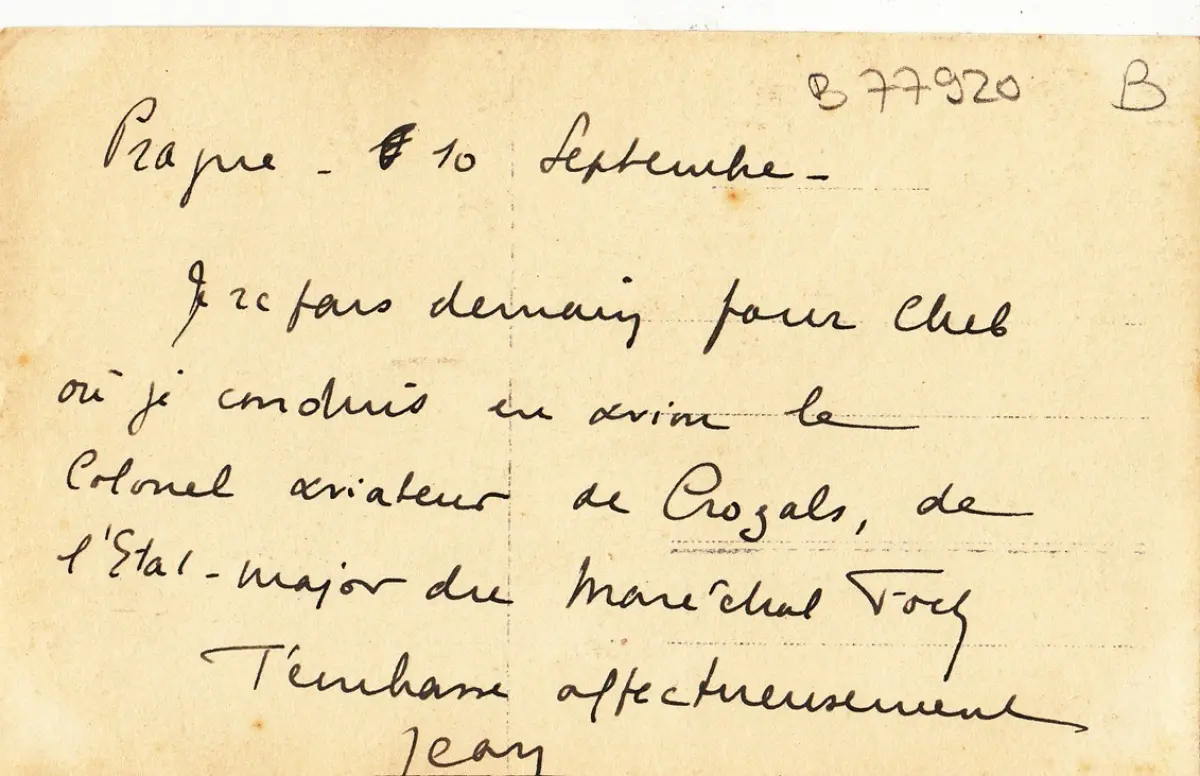 B 77920 B
Prague - 10 Septembre -
Je repars demain pour Cheb
où je conduis en avion le
Colonel aviateur de Crozals, de
l'Etat-major du Maréchal Foch
T'embrasse affectueusement
Jean